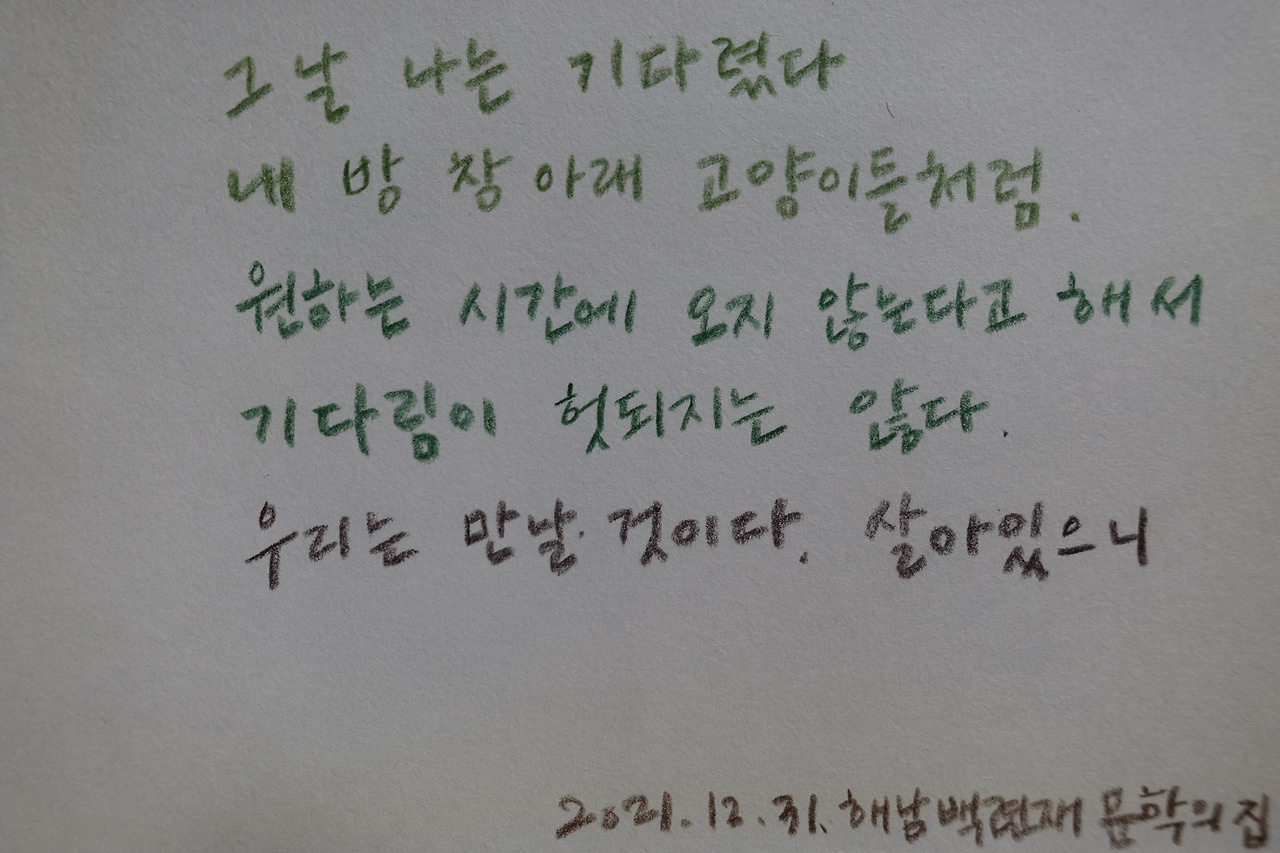 그날 나는 기다렸다
내 방 창 아래 고양이들처럼.
원하는 시간에 오지 않는다고 해서
기다림이 헛되지는 않다.
우리는 만날 것이다. 살아있으니
2021. 12. 31. 해남백련재 문학의 집